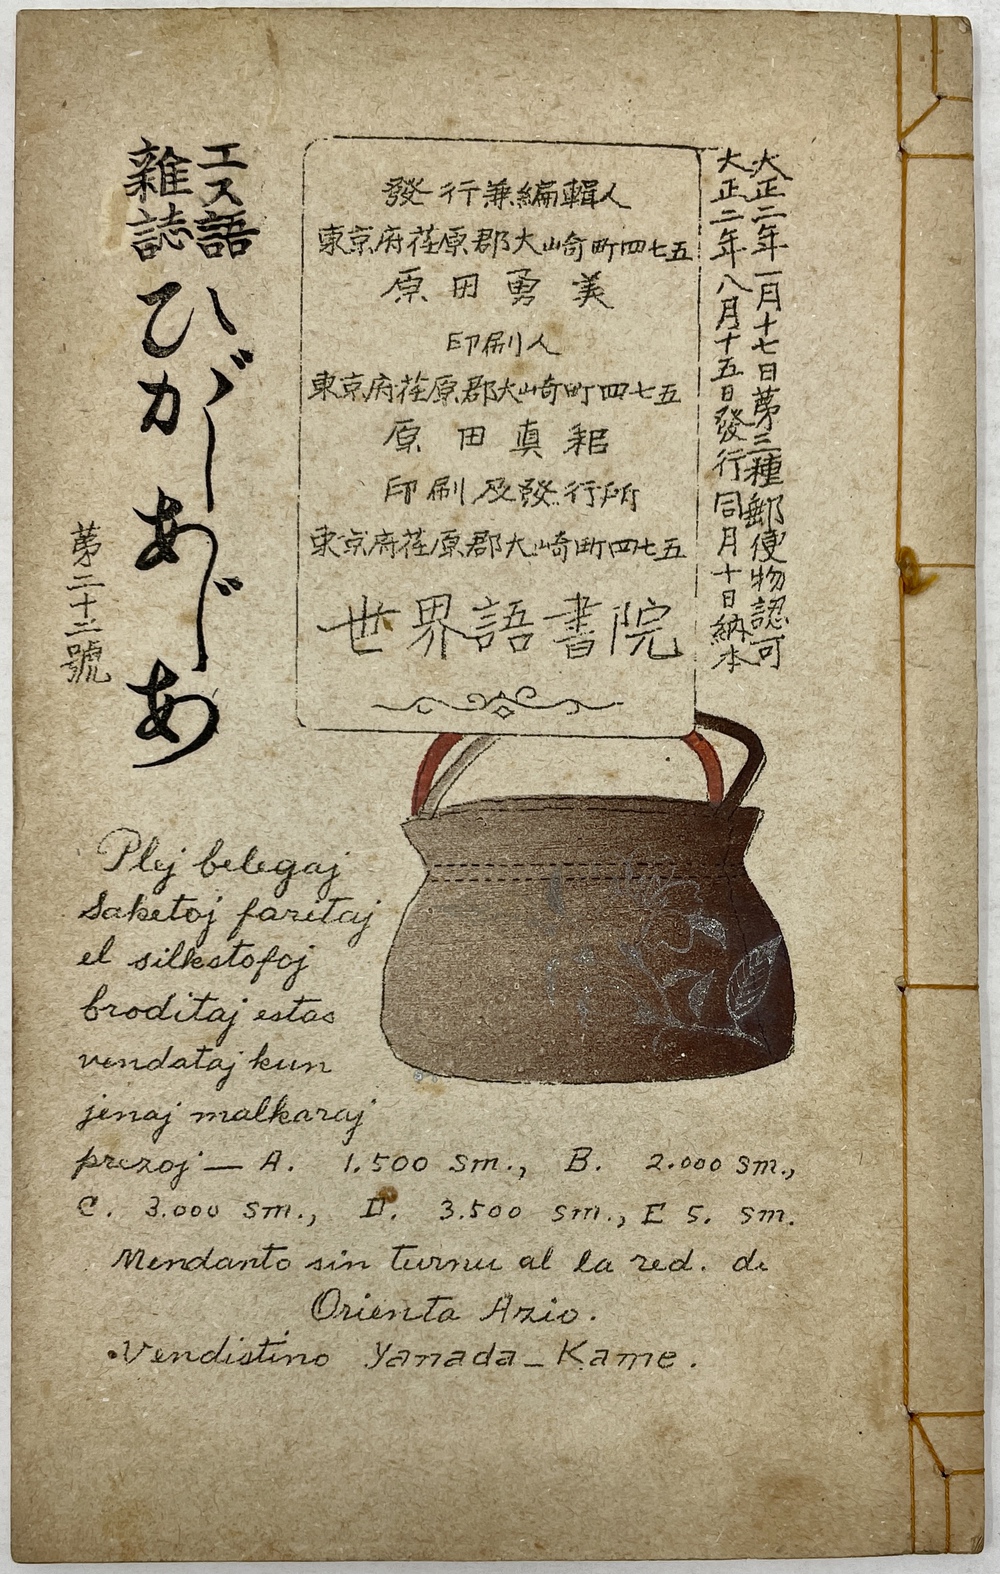 大正二年一月十七日第三種郵便物認可
大正二年八月十五日發行同月十日納本
發行兼編輯人
東京府荏原郡大崎町四七五
原田勇美
印刷人
東京府荏原郡大崎町四七五
原田真糿
印刷及發行所
東京府荏原郡大崎町四七五
世界語書院
エス語
雜誌
ひがしあじあ
第二十二號
Plej belegaj
saketoj faritaj
el silkstofoj
broditaj estas
vendataj kun
jenaj malkaraj
prezoj — A. 1.500 Sm., B. 2.000 Sm.,
C. 3.000 Sm., D. 3.500 Sm., E 5. Sm.
Mendanto sin turnu al la red. de
Orienta Azio.
Vendistino Yamada-Kame.